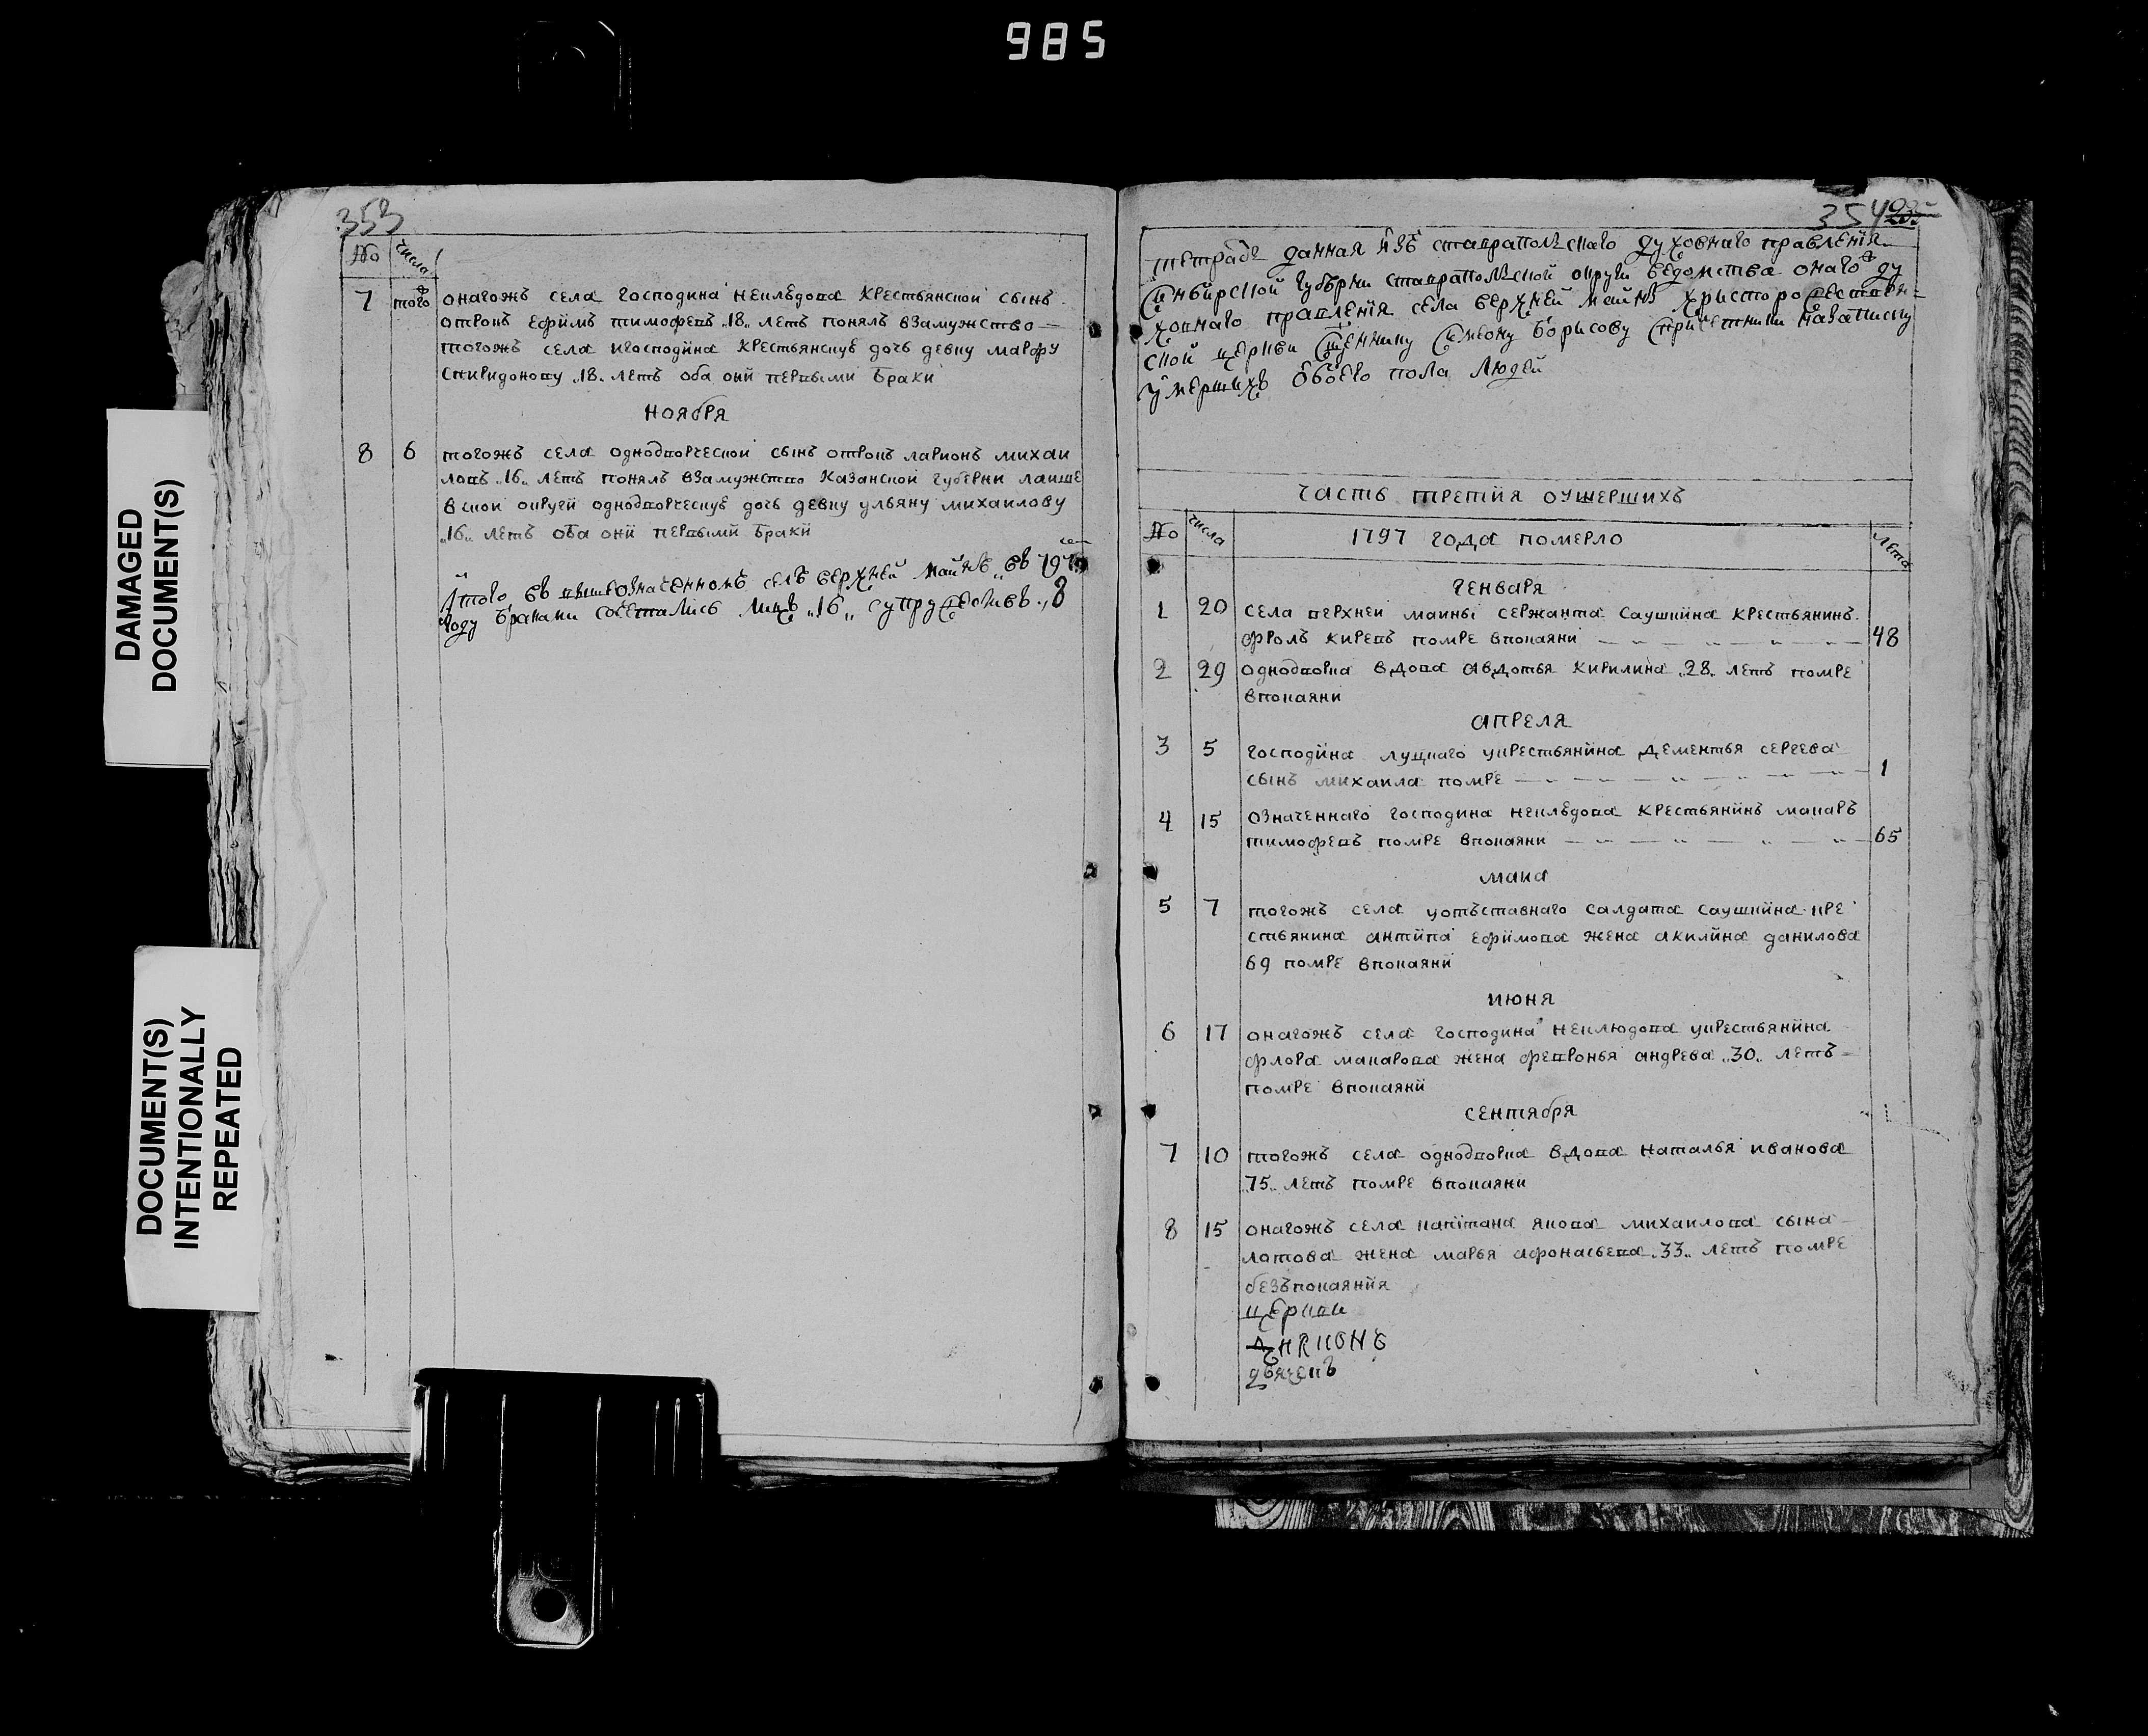 985
DAMAGED
DOCUMENT(S)
DOCUMENT(S)
INTENTIONALLY
REPEATED
353
№ числа
7 того онагожъ села господина неклѣдова крестьянской сынъ
отрокъ ефимъ тимофеевъ „18„ летъ понялъ взамужство
тогожъ села игосподина крестьянскуѣ дочь девку марфу
спиридонову „18„ летъ оба они первыми браки
ноября
8 6 тогожъ села однодворческой сынъ отрокъ ларионъ михаи
ловъ „16„ летъ понялъ взамужство казанской губерни лаише
вской округи однодворческуѣ дочь девку ульяну михаилову
„16„ летъ оба они первыми браки
итого въ вышеозначенномъ селѣ верхней майнѣ въ 797
году браками сочетались лицъ „16„ супружествъ „8
354
тетрадь данная изъ ставропольскаго духовнаго правления
синбирской губерни ставропольской округи ведомства онаго ду
ховнаго правления села верхней майнѣ христорождествен
ской церкви сщеннику симеону борисову спричетники назаписку
умершихъ обоего пола людей
часть третия оумершихъ
№ числа 1797 года померло лета
генваря
1 20 села верхней маины сержанта саушкина крестьянинъ
фролъ киревъ помре впокаяни 48
2 29 однодворка вдова авдотья кирилина „28„ летъ помре
впокаяни
апреля
3 5 господина луцкаго укрестьянина дементья сергева
сынъ михаила помре 1
4 15 означеннаго господина неклѣдова крестьянинъ макаръ
тимофевъ помре впокаяни 65
маиа
5 7 тогожъ села уотъставнаго салдата саушкина кре
стьянина антипа ефимова жена акилина данилова
69 помре впокаяни
июня
6 17 онагожъ села господина неклюдова укрестьянина
флора макарова жена февронья андрева „30„ летъ
помре впокаяни
сентября
7 10 тогожъ села однодворка вдова наталья иванова
„75„ летъ помре впокаяни
8 15 онагожъ села капитана якова михаилова сына
лотова жена марья афонасьева „33„ летъ помре
безъпокаяния
церкви
диаконъ